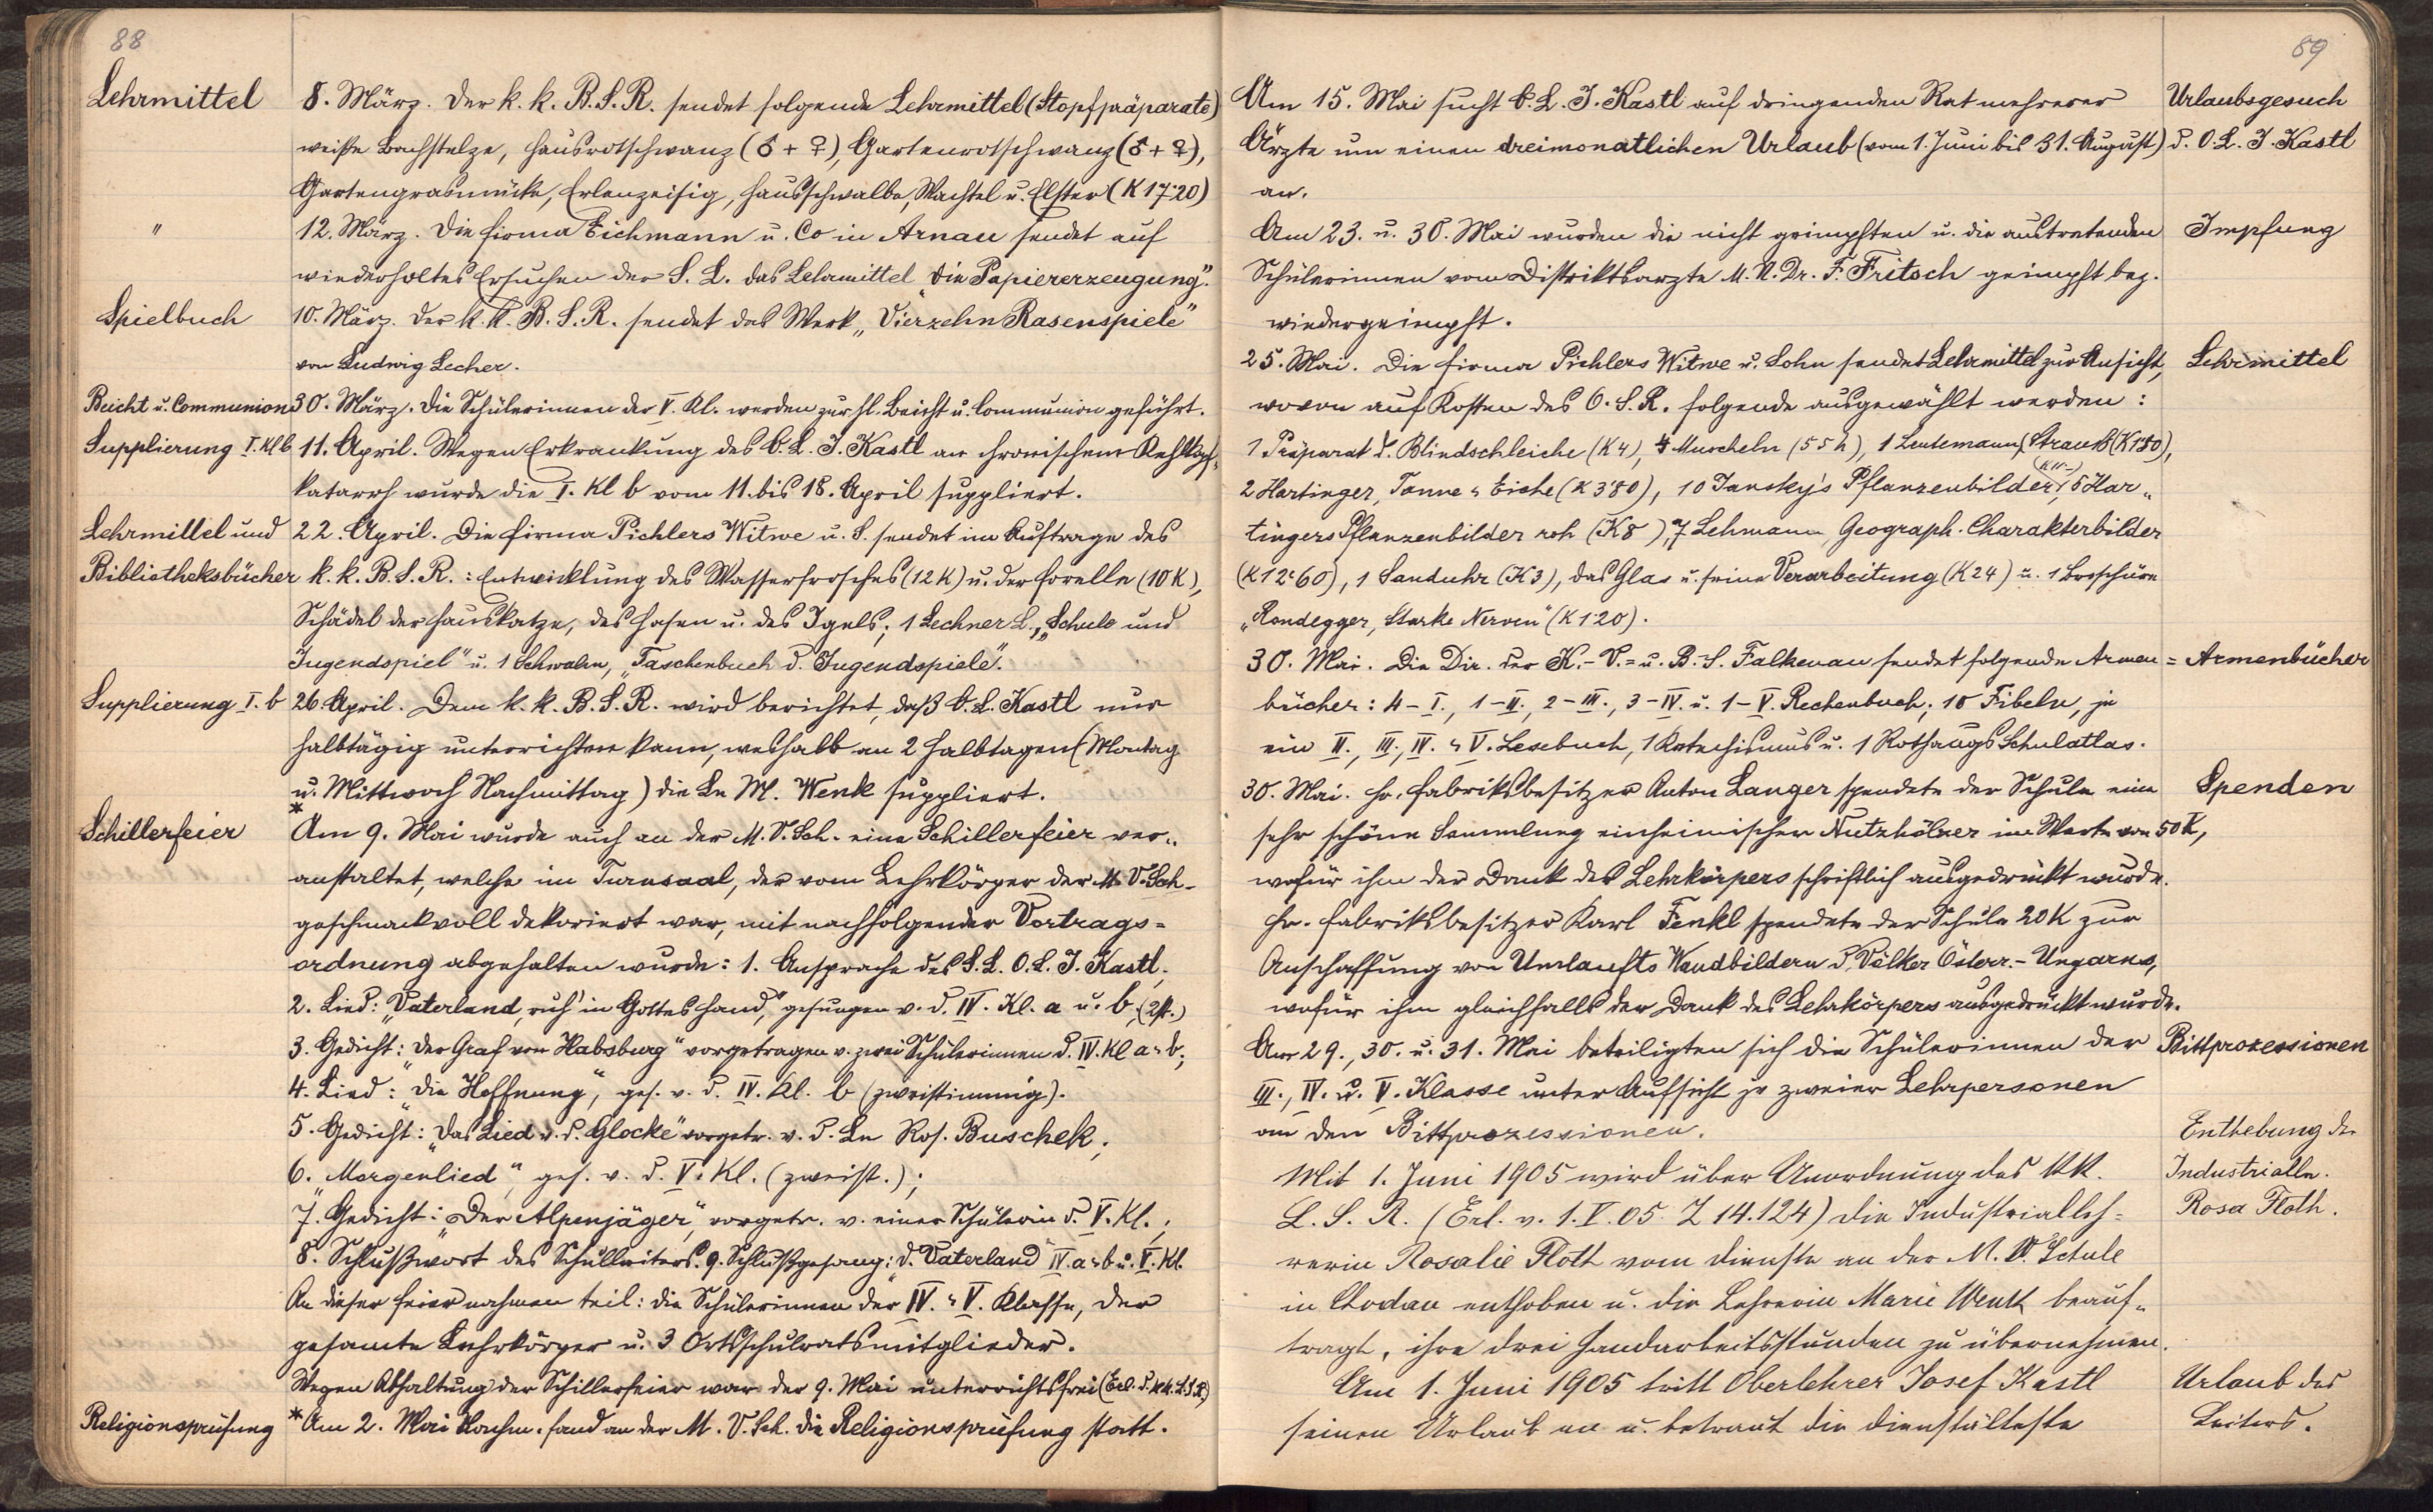 88
Lehrmittel
8. März. Der k. k. B. S. R. sendet folgende Lehrmittel (Stopfpräparate)
weiße Bachstelze, Hausrotschwanz (♂ + ♀), Gartenrotschwanz (♂ + ♀),
Gartengrasmücke, Erlenzeisig, Hausschwalbe, Wachtel u. Elster (K 17·20)
"
12. März. Die Firma Eichmann u. Co in Arnau sendet auf
wiederholtes Ersuchen der S. L. das Lehrmittel „Die Papiererzeugung".
Spielbuch
10. März. Der k. k. B. S. R. sendet das Werk „Vierzehn Rasenspiele"
von Ludwig Lecher.
Beicht u. Communion
30. März. Die Schülerinnen der V. Kl. werden zur hl. Beicht u. Communion geführt.
Supplierung I. Kl b
11. April. Wegen Erkrankung des O. L. J. Kastl an chronischem Kehlkopf-
katarrh wurde die I. Kl b vom 11. bis 18. April suppliert.
Lehrmittel und
22. April. Die Firma Pichlers Witwe u. S. sendet im Auftrage des
Bibliotheksbücher
k. k. B. S. R.: Entwicklung des Wasserfrosches (12 K) u. der Forelle (10 K),
Schädel der Hauskatze, des Hasen u. des Igels; 1 Lechner L., „Schule und
Jugendspiel" u. 1 Schwalm, „Taschenbuch d. Jugendspiele".
Supplierung I. b
26. April. Dem k. k. B. S. R. wird berichtet, daß O. L. Kastl nur
halbtägig unterrichten kann, weshalb an 2 Halbtagen (Montag
u. Mittwoch Nachmittag) die Ln M. Wenk suppliert.
*
Schillerfeier
Am 9. Mai wurde auch an der M. V. Sch. eine Schillerfeier ver-
anstaltet, welche im Turnsaal, der vom Lehrkörper der M. V. Sch.
geschmackvoll dekoriert war, mit nachfolgender Vortrags=
ordnung abgehalten wurde: 1. Ansprache des S. L. O. L. J. Kastl;
2. Lied: „Vaterland, ruh' in Gottes Hand," gesungen v. d. IV. Kl. a u. b; (2st.)
3. Gedicht: „Der Graf von Habsburg" vorgetragen v. zwei Schülerinnen d. IV. Kl a u. b;
4. Lied: „Die Hoffnung", ges. v. d. IV. Kl. b (zweistimmig).
5. Gedicht: „Das Lied v. d. Glocke" vorgetr. v. d. Ln Ros. Buschek;
6. „Morgenlied," ges. v. d. V. Kl. (zweist.);
7. Gedicht: „Der Alpenjäger," vorgetr. v. einer Schülerin d. V. Kl.;
8. Schlußwort des Schulleiters. 9. Schlußgesang: „d. Vaterland" IV. a u. b u. V. Kl.
An dieser Feier nahmen teil: die Schülerinnen der IV. u. V. Klasse, der
gesamte Lehrkörper u. 3 Ortsschulratsmitglieder.
Wegen Abhaltung der Schillerfeier war der 9. Mai unterrichtsfrei (Erl. d. k. k. L. S. R.)
Religionsprüfung
* Am 2. Mai Nachm. fand an der M. V. Sch. die Religionsprüfung statt.
89
Am 15. Mai sucht O. L. J. Kastl auf dringenden Rat mehrerer
Urlaubsgesuch
Ärzte um einen dreimonatlichen Urlaub (vom 1. Juni bis 31. August)
d. O. L. J. Kastl
an.
Am 23. u. 30. Mai wurden die nicht geimpften u. die austretenden
Impfung
Schülerinnen vom Distriktsarzte M. U. Dr. F. Fritsch geimpft bez.
wiedergeimpft.
25. Mai. Die Firma Pichlers Witwe u. Sohn sendet Lehrmittel zur Ansicht,
Lehrmittel
wovon auf Kosten des O. S. R. folgende ausgewählt werden:
1 Präparat d. Blindschleiche (K 4), 4 Muscheln (55 h), 1 Leutemann, Strauß (K 1·80),
2 Hartinger, Tanne u. Eiche (K 3·80), 10 Jansky's Pflanzenbilder, (K 11·-) 5 Har-
tingers Pflanzenbilder roh (K 8), 7 Lehmann, Geograph. Charakterbilder
(K 12·60), 1 Sanduhr (K 3), das Glas u. seine Verarbeitung (K 24) u. 1 Broschüre
„Rondegger, Starke Nerven" (K 1·20).
30. Mai. Die Dir. der K.-V.= u. B.-S. Falkenau sendet folgende Armen=
Armenbücher
bücher: 4 - I., 1 - II., 2 - III., 3 - IV. u. 1 - V. Rechenbuch; 10 Fibeln, je
ein II., III., IV. u. V. Lesebuch, 1 Katechismus u. 1 Rothaugs Schulatlas.
30. Mai. Hr. Fabriksbesitzer Anton Langer spendete der Schule eine
Spenden
sehr schöne Sammlung einheimischer Nutzhölzer im Werte von 50 K,
wofür ihm der Dank des Lehrkörpers schriftlich ausgedrückt wurde.
Hr. Fabriksbesitzer Karl Fenkl spendete der Schule 20 K zur
Anschaffung von Umlaufts Wandbildern d. Völker Österr.-Ungarns,
wofür ihm gleichfalls der Dank des Lehrkörpers ausgedrückt wurde.
Am 29., 30. u. 31. Mai beteiligten sich die Schülerinnen der
Bittprozessionen
III., IV. u. V. Klasse unter Aufsicht je zweier Lehrpersonen
an den Bittprozessionen.
Enthebung der
Mit 1. Juni 1905 wird über Anordnung des k. k.
Industrialln.
L. S. R. (Erl. v. 1. V. 05 Z 14.124) die Industrialleh-
Rosa Floth.
rerin Rosalie Floth vom Dienste an der M. V. Schule
in Chodau enthoben u. die Lehrerin Marie Wenk beauf-
tragt, ihre drei Handarbeitsstunden zu übernehmen.
Am 1. Juni 1905 tritt Oberlehrer Josef Kastl
Urlaub des
seinen Urlaub an u. betraut die dienstälteste
Leiters.